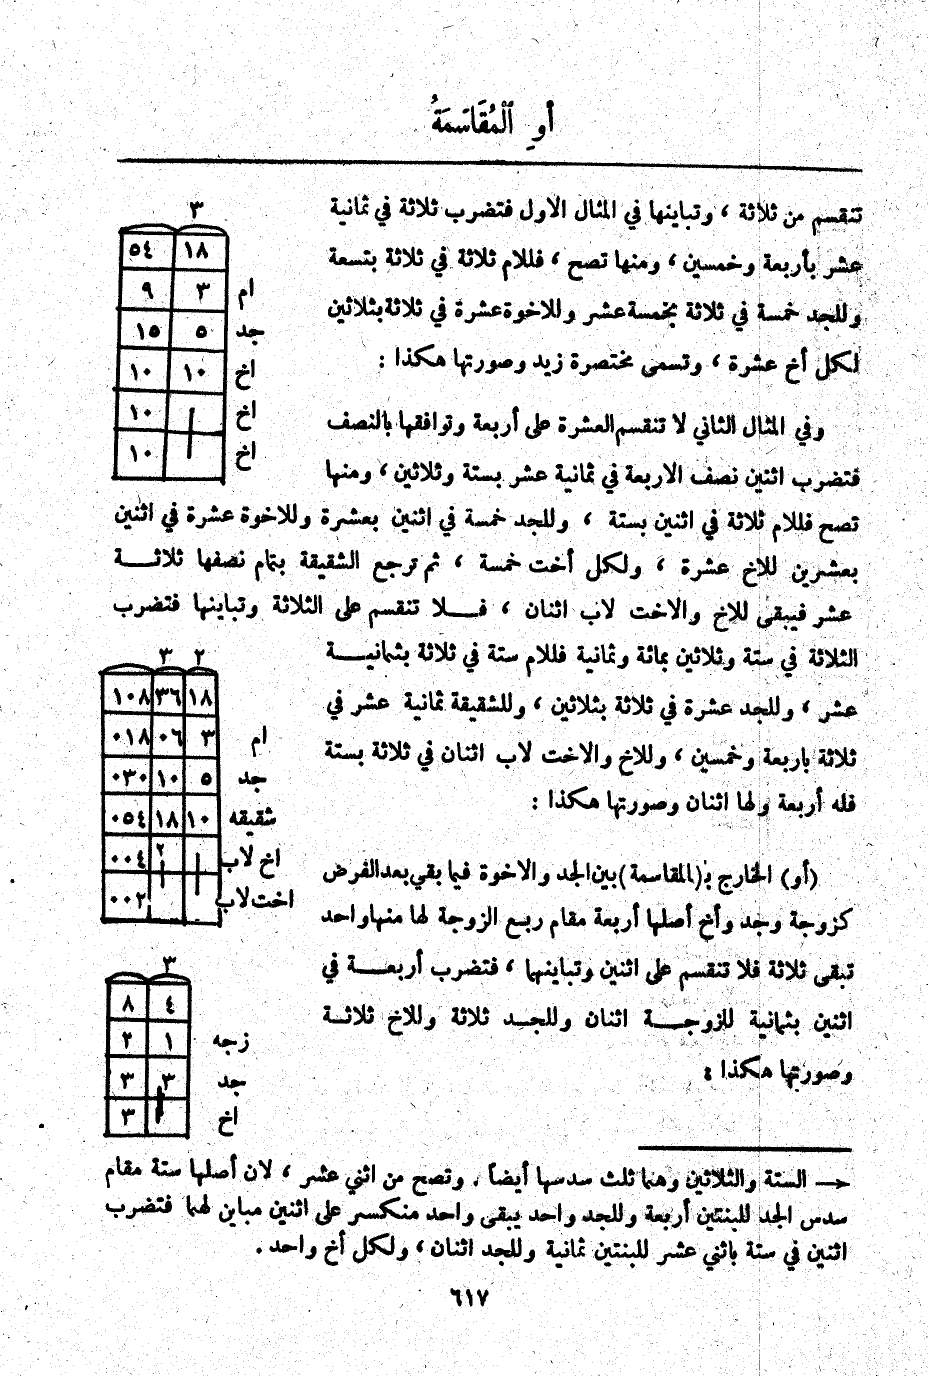 أو ٱلْمُقَاسَمَةُ
تنقسم من ثلاثة ، وتباينها في المثال الاول فتضرب ثلاثة في ثمانية
عشر بأربعة وخمسين ، ومنها تصح ، فللام ثلاثة في ثلاثة بتسعة
وللجد خمسة في ثلاثة بخمسةعشر وللاخوةعشرة في ثلاثةبثلاثين
لكل أخ عشرة ، وتسمى مختصرة زيد وصورتها هكذا :
٣
١٨ ٥٤
ام ٣ ٩
جد ٥ ١٥
اخ ١٠ ١٠
اخ ١٠
اخ ١٠
وفي المثال الثاني لا تنقسم العشرة على أربعة وتوافقها بالنصف
فتضرب اثنين نصف الاربعة في ثمانية عشر بستة وثلاثين ، ومنها
تصح فللام ثلاثة في اثنين بستة ، وللجد خمسة في اثنين بعشرة وللاخوة عشرة في اثنين
بعشرين للاخ عشرة ، ولكل أخت خمسة ، ثم ترجع الشقيقة بتمام نصفها ثلاثــة
عشر فيبقى للاخ والاخت لاب اثنان ، فــلا تنقسم على الثلاثة وتباينها فتضرب
الثلاثة في ستة وثلاثين بمائة وثمانية فللام ستة في ثلاثة بثمانيــة
عشر ، وللجد عشرة في ثلاثة بثلاثين ، وللشقيقة ثمانية عشر في
ثلاثة باربعة وخمسين ، وللاخ والاخت لاب اثنان في ثلاثة بستة
فله أربعة ولها اثنان وصورتها هكذا :
٢ ٣
١٨ ٣٦ ١٠٨
ام ٣ ٠٦ ٠١٨
جد ٥ ١٠ ٠٣٠
شقيقه ١٠ ١٨ ٠٥٤
اخ لاب ٢ ٠٠٤
اخت لاب ٠٠٢
(أو) الخارج بـ(المقاسمة) بين الجد والاخوة فيما بقي بعد الفرض
كزوجة وجد وأخ أصلها أربعة مقام ربع الزوجة لها منها واحد
تبقى ثلاثة فلا تنقسم على اثنين وتباينهما ، فتضرب أربعــة في
اثنين بثمانية للزوجــة اثنان وللجــد ثلاثة وللاخ ثلاثــة
وصورتها هكذا :
٣
٤ ٨
زجه ١ ٢
جد ٣ ٣
اخ ٣
← الستة والثلاثين وهما ثلث سدسها أيضاً ، وتصح من اثني عشر ، لان أصلها ستة مقام
سدس الجد للبنتين أربعة وللجد واحد يبقى واحد منكسر على اثنين مباين لهما فتضرب
اثنين في ستة باثني عشر للبنتين ثمانية وللجد اثنان ، ولكل أخ واحد .
٦١٧